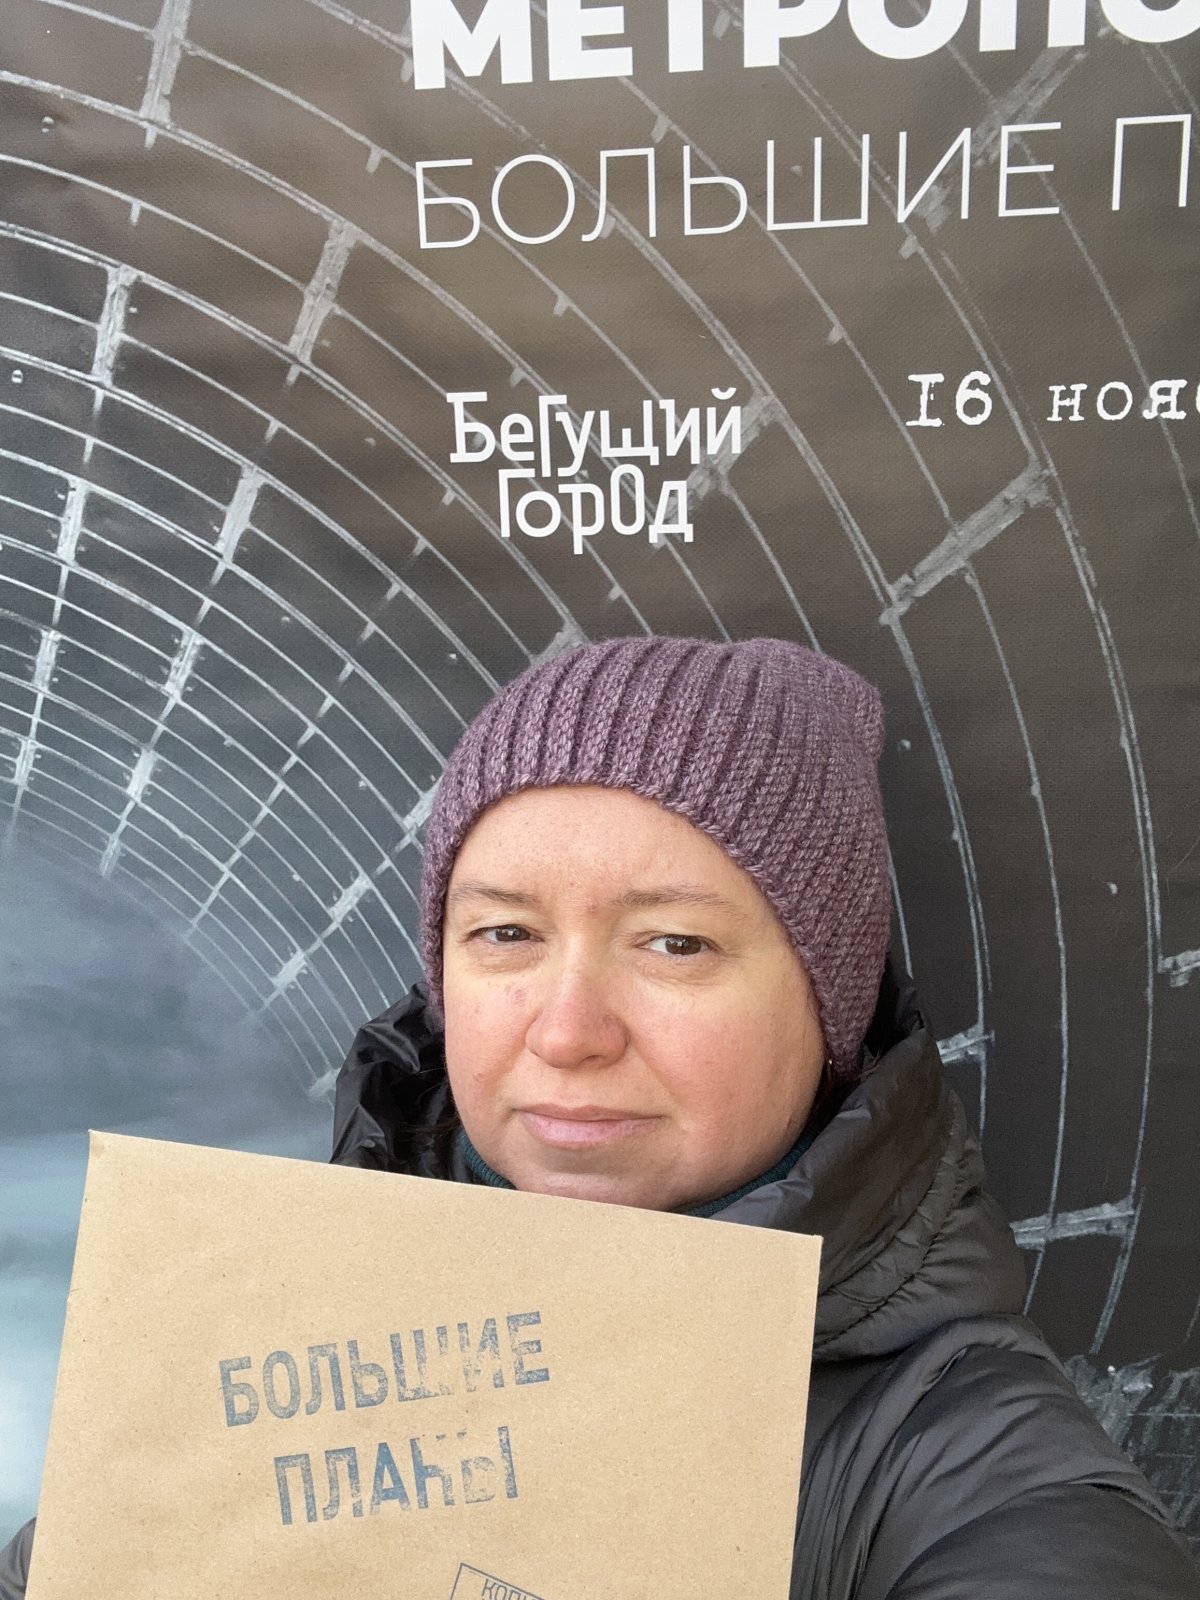 МЕТРОПО
БОЛЬШИЕ П
Бегущий
Город
16 нояб
БОЛЬШИЕ
ПЛАНЫ